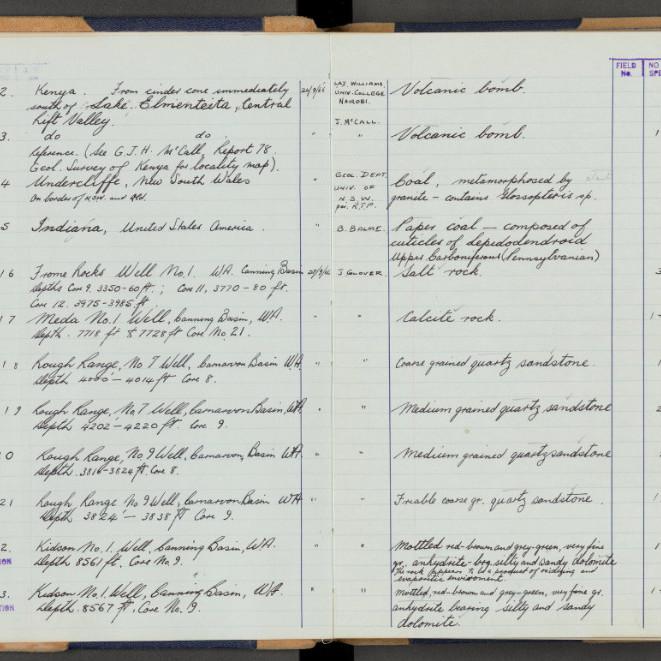 FIELD No. NO SPE
2. Kenya. From cinder cone immediately 20/9/66 LAJ. WILLIAMS Volcanic bomb.
south of Lake Elmenteita, Central UNIV. COLLEGE
Rift Valley. NAIROBI.
3. do do " J. McCALL. " Volcanic bomb. 1
Reference. (See G.J.H. McCall, Report 78.
Geol. Survey of Kenya for locality map).
4 Undercliffe, New South Wales " GEOL. DEPT. Coal, metamorphosed by
on border of N.S.W. and Qld. UNIV. OF granite - contains Glossopteris sp.
N.S.W.
per. R.T.P.
5 Indiana, United States America. " B. BALME. Paper coal — composed of
cuticles of depidodendroid
Upper Carboniferous (Pennsylvanian)
16 Frome Rocks Well No.1. WA. Canning Basin J GLOVER. Salt rock. 3
Depths Core 9. 3350-60 ft. ; Core 11, 3770 - 80 ft.
Core 12. 3975-3985 ft.
17 Meda No.1 Well, Canning Basin, W.A. " " Calcite rock. 1-
Depth. 7718 ft & 7728 ft Core No. 21.
18 Rough Range, No 7 Well, Carnarvon Basin WA " " Coarse grained quartz sandstone. 1
Depth 4000 - 4014 ft Core 8.
19 Rough Range, No.7 Well, Carnarvon Basin, WA " " Medium grained quartz sandstone 2
Depths 4202 - 4220 ft. Core 9.
0 Rough Range, No.9 Well, Carnarvon, Basin WA " " Medium grained quartz sandstone
Depth 3816-3824 ft. Core 8.
21 Rough Range No 9 Well, Carnarvon Basin WA " " Friable coarse gr. quartz sandstone. 1
Depth 3824 - 3838 ft Core 9.
2. Kidson No.1. Well, Canning Basin, W.A. " " Mottled red-brown and grey-green, very fine 1
TION Depth 8561 ft. Core No.9. gr. anhydrite-brg. silty and sandy dolomite
The rock appears to be a product of oxidising and
evaporitic environment.
3. Kidson No.1. Well, Canning Basin, WA " " Mottled, red-brown and grey-green, very fine gr. 1-
TION Depth. 8567 ft, Core No. 9. anhydrite bearing silty and sandy
dolomite.